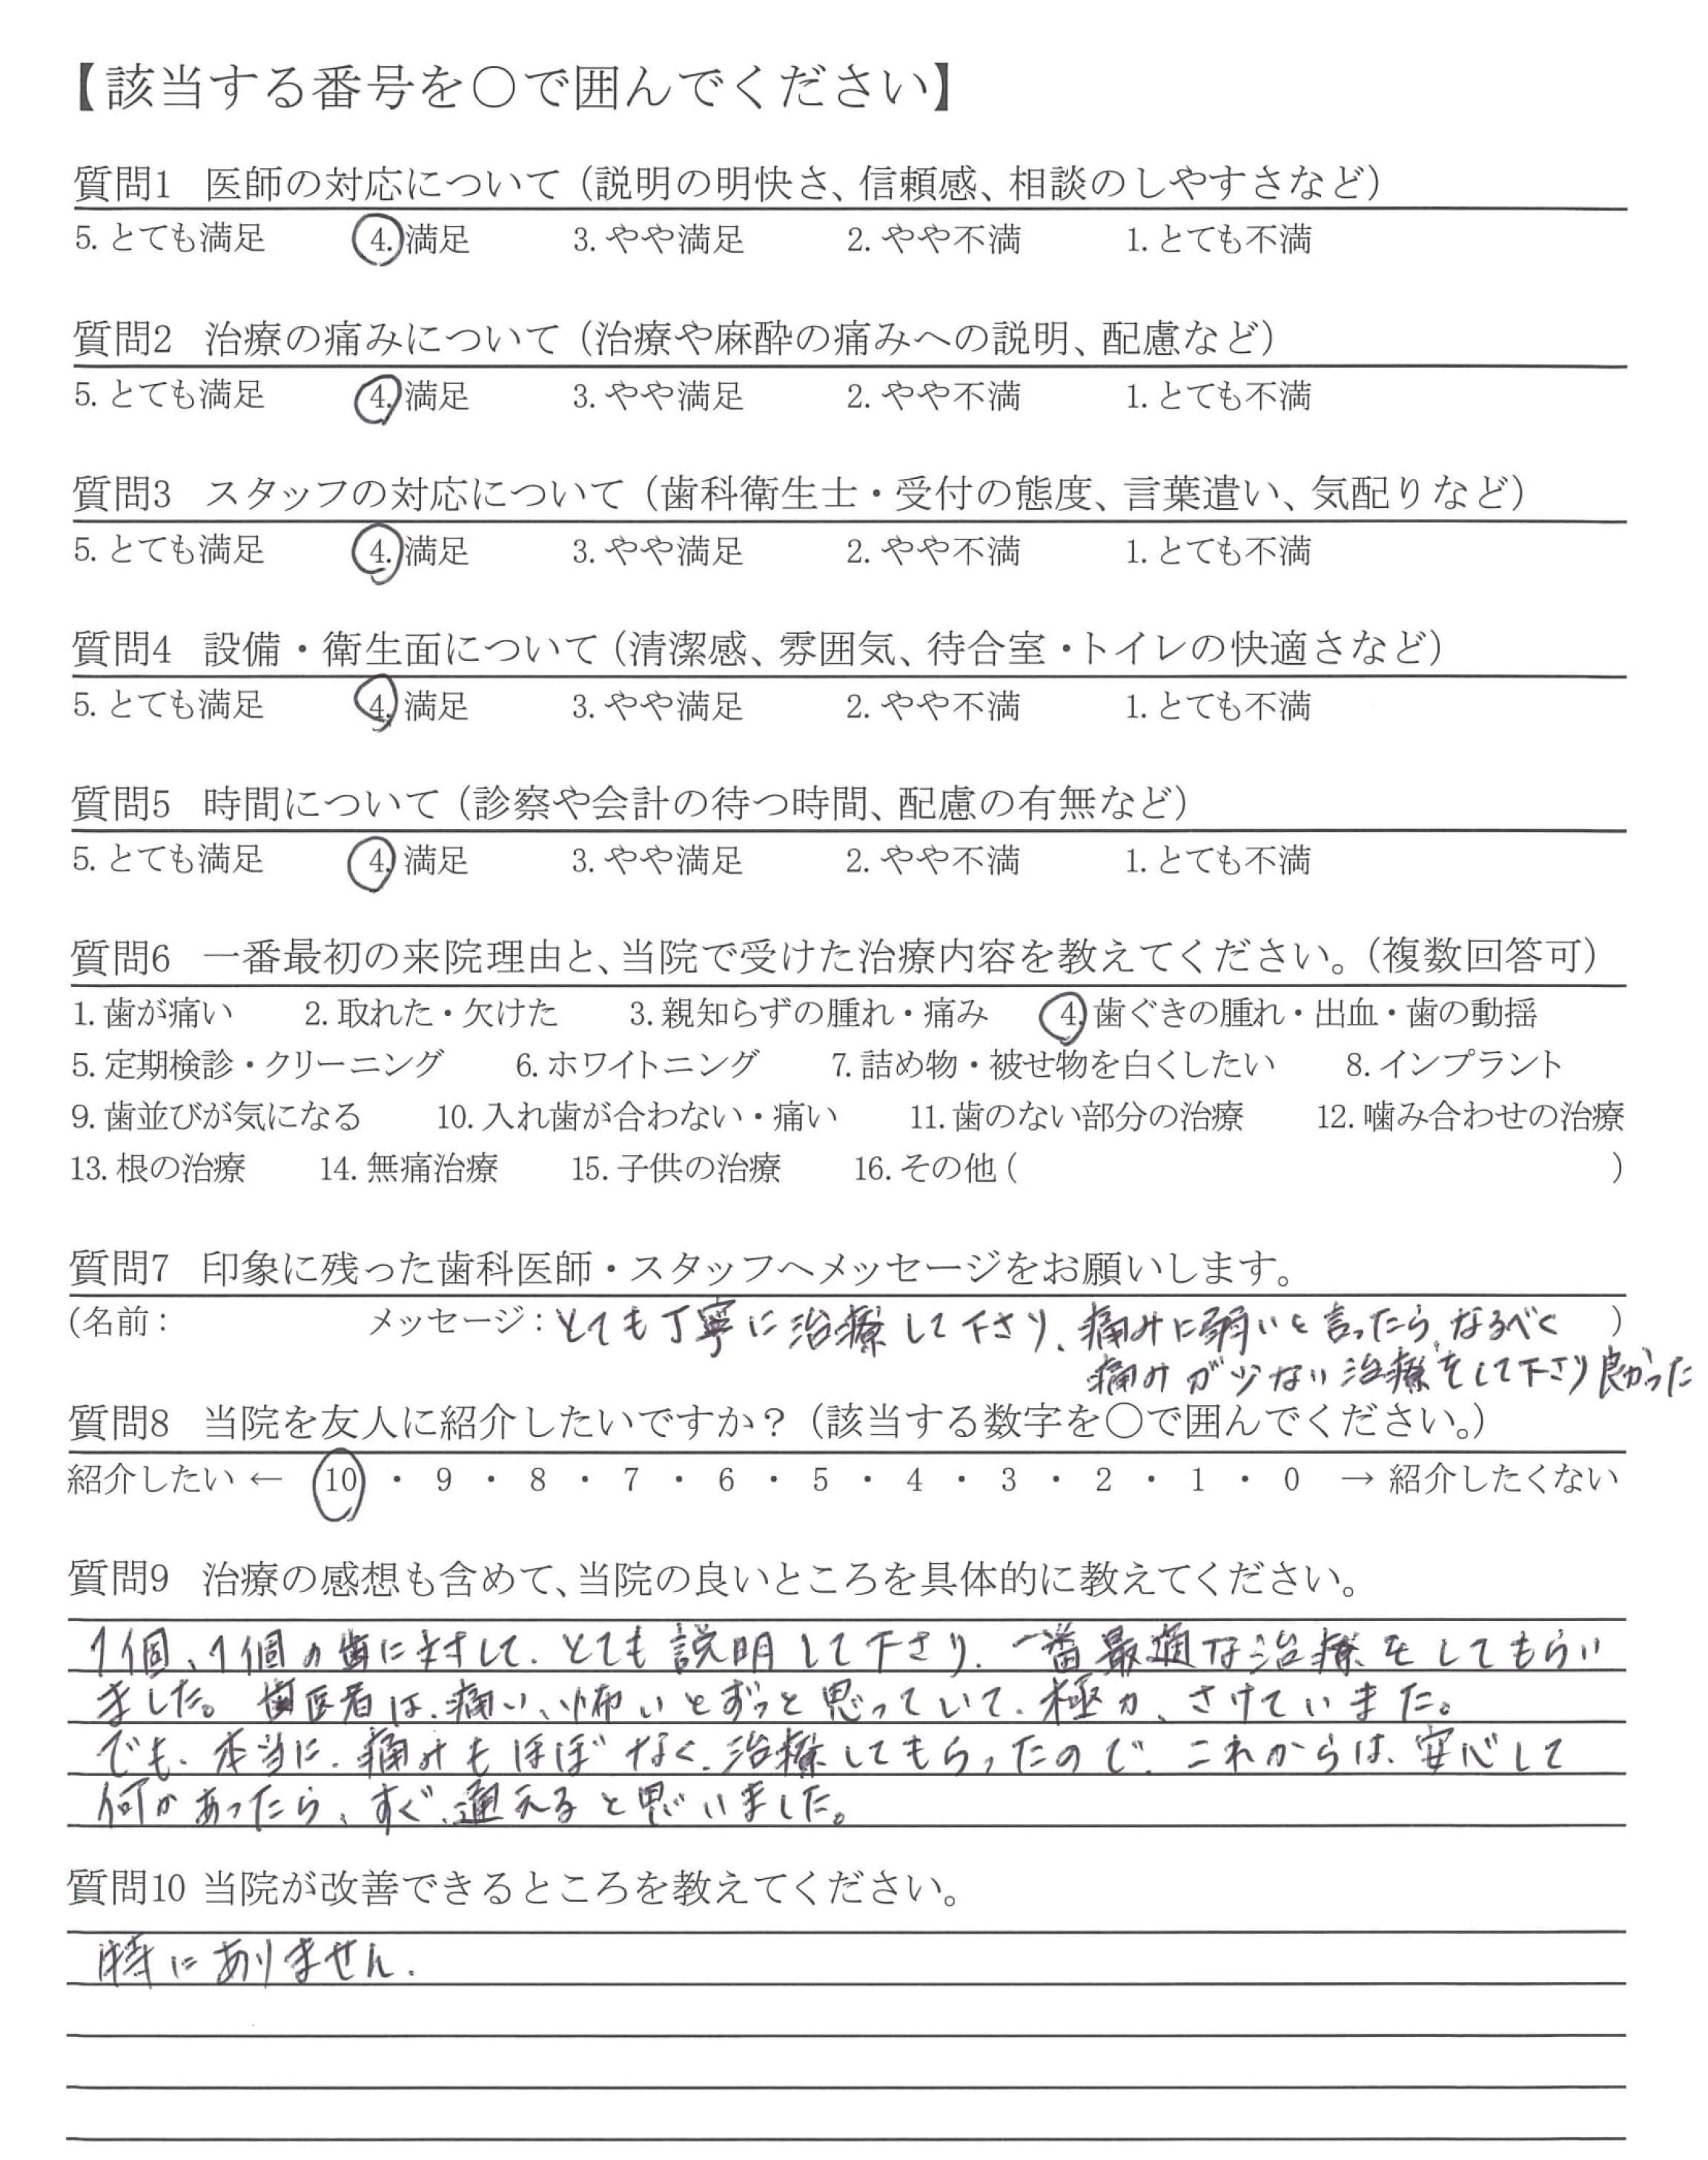 【該当する番号を〇で囲んでください】
質問1 医師の対応について（説明の明快さ、信頼感、相談のしやすさなど）
5. とても満足 4. 満足 3. やや満足 2. やや不満 1. とても不満
質問2 治療の痛みについて（治療や麻酔の痛みへの説明、配慮など）
5. とても満足 4. 満足 3. やや満足 2. やや不満 1. とても不満
質問3 スタッフの対応について（歯科衛生士・受付の態度、言葉遣い、気配りなど）
5. とても満足 4. 満足 3. やや満足 2. やや不満 1. とても不満
質問4 設備・衛生面について（清潔感、雰囲気、待合室・トイレの快適さなど）
5. とても満足 4. 満足 3. やや満足 2. やや不満 1. とても不満
質問5 時間について（診察や会計の待つ時間、配慮の有無など）
5. とても満足 4. 満足 3. やや満足 2. やや不満 1. とても不満
質問6 一番最初の来院理由と、当院で受けた治療内容を教えてください。（複数回答可）
1. 歯が痛い 2. 取れた・欠けた 3. 親知らずの腫れ・痛み 4. 歯ぐきの腫れ・出血・歯の動揺
5. 定期検診・クリーニング 6. ホワイトニング 7. 詰め物・被せ物を白くしたい 8. インプラント
9. 歯並びが気になる 10. 入れ歯が合わない・痛い 11. 歯のない部分の治療 12. 噛み合わせの治療
13. 根の治療 14. 無痛治療 15. 子供の治療 16. その他（ ）
質問7 印象に残った歯科医師・スタッフへメッセージをお願いします。
(名前: メッセージ: とても丁寧に治療して下さり、痛みに弱いと言ったら、なるべく )
痛みが少ない治療をして下さり良かった
質問8 当院を友人に紹介したいですか？（該当する数字を〇で囲んでください。）
紹介したい ← 10 ・ 9 ・ 8 ・ 7 ・ 6 ・ 5 ・ 4 ・ 3 ・ 2 ・ 1 ・ 0 → 紹介したくない
質問9 治療の感想も含めて、当院の良いところを具体的に教えてください。
1個、1個の歯に対して、とても説明して下さり、一番最適な治療をしてもらい
ました。歯医者は、痛い、怖いとずっと思っていて、極力、さけていました。
でも、本当に、痛みもほぼなく、治療してもらったので、これからは、安心して
何かあったら、すぐ、通えると思いました。
質問10 当院が改善できるところを教えてください。
特にありません.